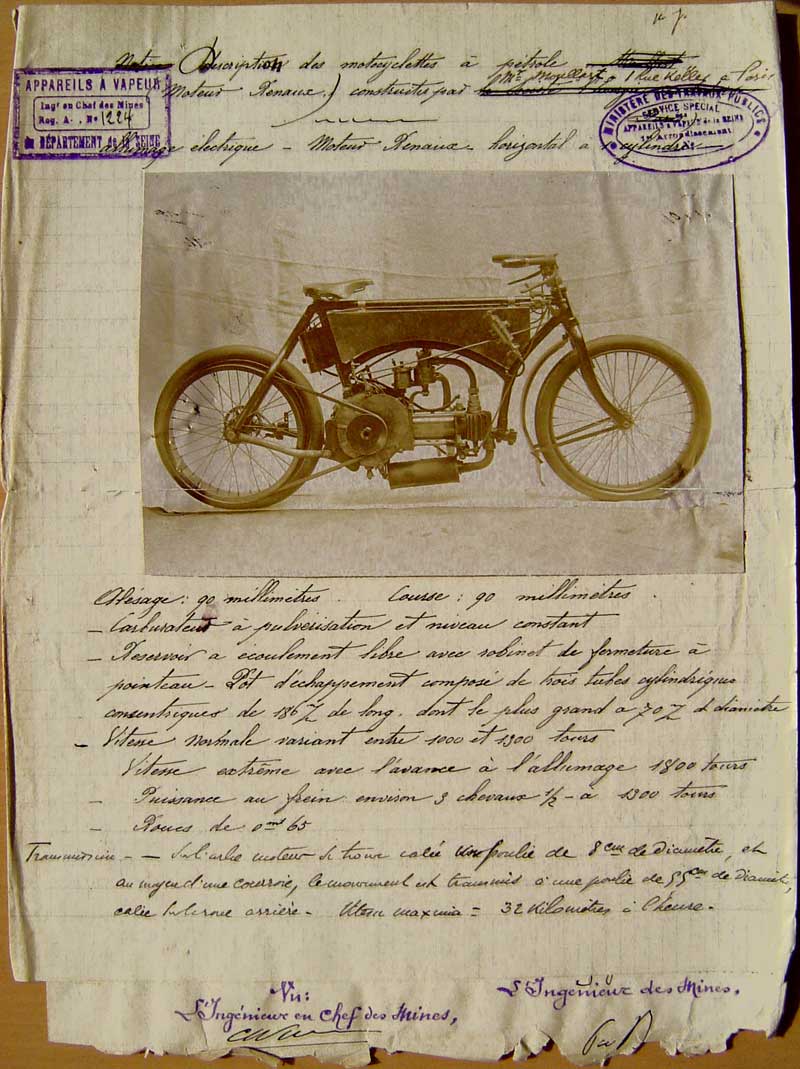 Description des motocyclettes à pétrole
Moteur Renaux) construites par Mr 1 Rue Keller à Paris
APPAREILS À VAPEUR
Ingr en Chef des Mines
Reg. A. N° 1224
du DÉPARTEMENT de la SEINE
MINISTÈRE DES TRAVAUX PUBLICS
SERVICE SPÉCIAL
DES
APPAREILS À VAPEUR de la SEINE
Arrondissement
allumage électrique - Moteur Renaux - horizontal à 1 cylindre
Alésage : 90 millimètres. Course : 90 millimètres.
- Carburateur à pulvérisation et niveau constant
- Réservoir a écoulement libre avec robinet de fermeture à
pointeau - Pôt d'échappement composé de trois tubes cylindriques
consentriques de de long. dont le plus grand a de diamètre
- Vitesse normale variant entre 1000 et 1300 tours
Vitesse extrême avec l'avance à l'allumage 1800 tours
- Puissance au frein environ 3 chevaux 1/2 - à 1300 tours
- Roues de 0mt 65
Transmission - - Sur l'arbre moteur se trouve calée une poulie de 8cm de Diamètre, et
au moyen d'une courroie, le mouvement est transmis à une poulie de 55cm de Diamèt,
calée sur la roue arrière - Vitesse maxima = 32 Kilomètres à l'heure.
Vu:
L'Ingénieur en Chef des Mines,
L'Ingénieur des Mines,